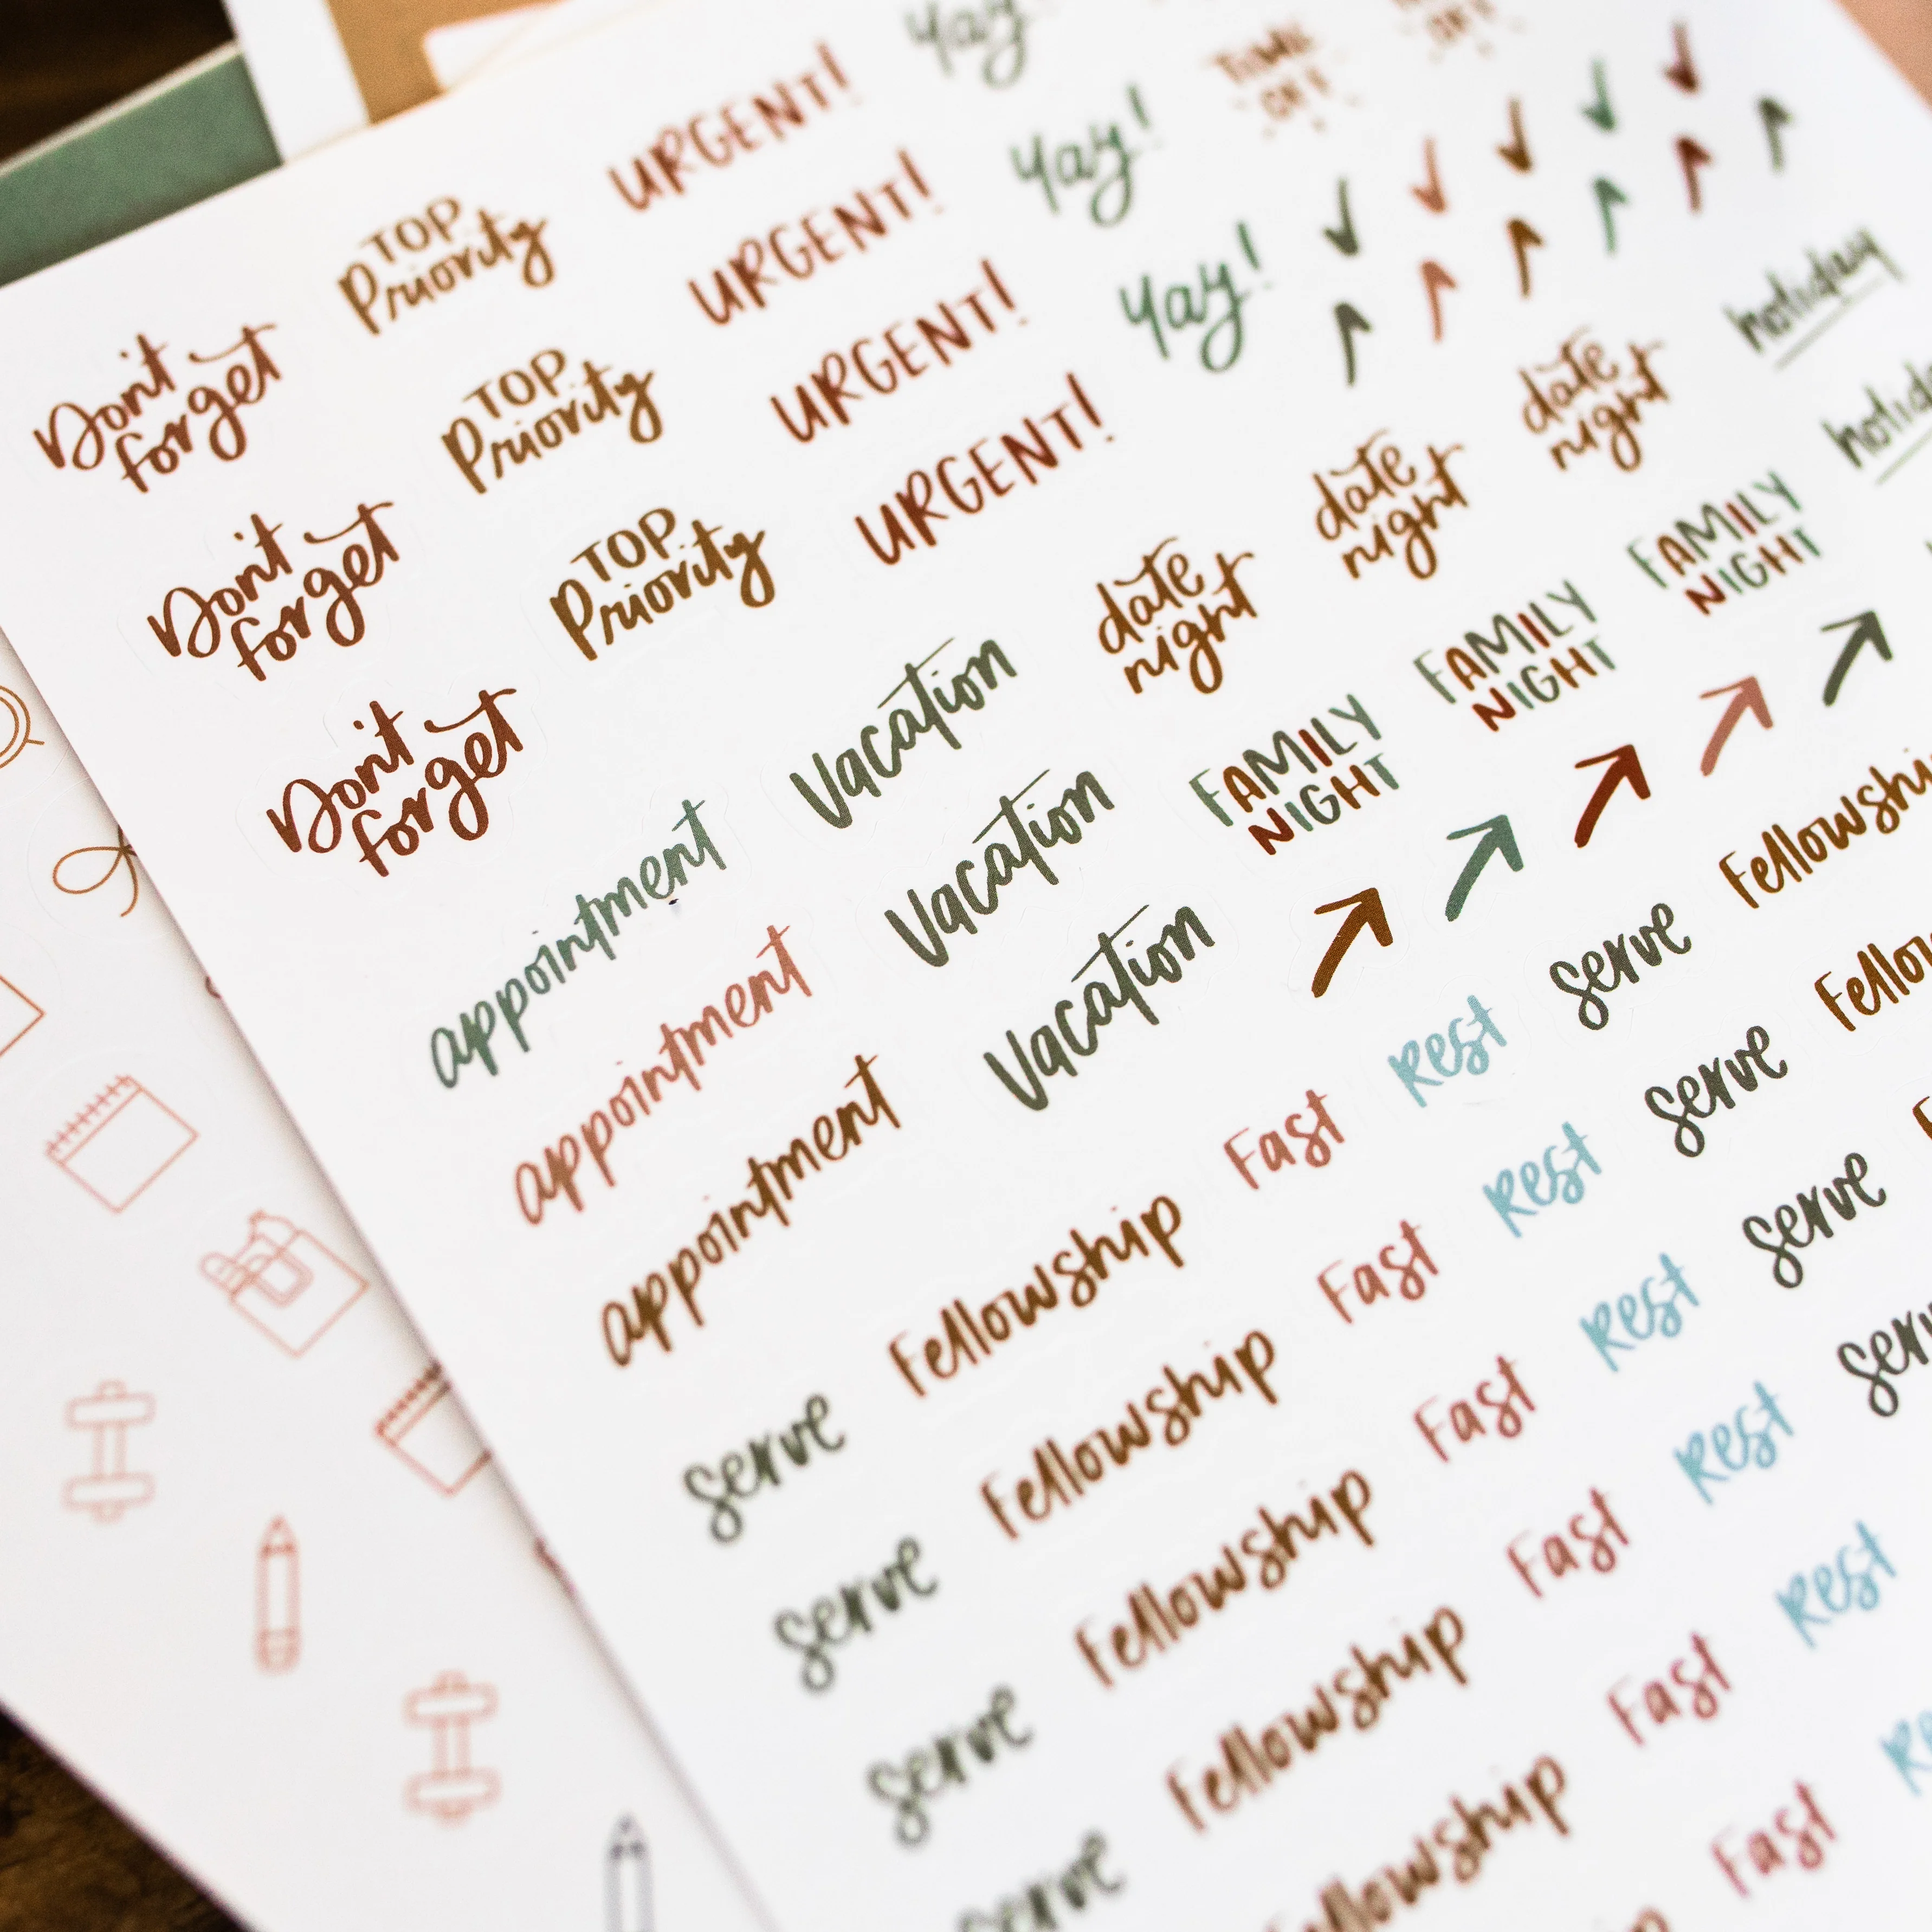 Don't
forget
Don't
forget
Don't
forget
TOP
Priority
TOP
Priority
TOP
Priority
URGENT!
URGENT!
URGENT!
URGENT!
Yay!
Yay!
Yay!
TIME
OFF
appointment
appointment
appointment
Vacation
Vacation
Vacation
date
night
date
night
date
night
FAMILY
NIGHT
FAMILY
NIGHT
FAMILY
NIGHT
holiday
holida
serve
serve
serve
serve
Fellowship
Fellowship
Fellowship
Fellowship
ellowship
Fast
Fast
Fast
Fast
Fast
Fast
Rest
Rest
Rest
Rest
Rest
Re
serve
serve
serve
serv
Fellowshi
Fellow